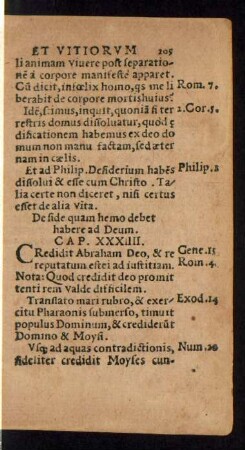 ET VITIORVM 205
li animam viuere post separatio-
nẽ à corpore manifestè apparet.
Cũ dicit, infœlix homo, qs me li Rom. 7.
berabit de corpore mortis huius?
Idẽ, scimus, inquit, quoniã si ter 2. Cor. 5.
restris domus dissoluatur, quòd ę
dificationem habemus ex deo do
mum non manu factam, sed æter
nam in cælis.
Et ad Philip. Desiderium habẽs Philip. 2
dissolui & esse cum Christo. Ta-
lia certe non diceret, nisi certus
esset de alia vita.
De fide quam hemo debet
habere ad Deum.
CAP. XXXIIII.
CRedidit Abraham Deo, & re Gene. 15
reputatum est ei ad iustitiam. Rom. 4.
Nota: Quod credidit deo promit
tenti rem valde difficilem.
Translato mari rubro, & exer- Exod. 14
citu Pharaonis submerso, timuit
populus Dominum, & crediderũt
Domino & Moysi.
Vsq; ad aquas contradictionis, Num. 20
fideliter credidit Moyses cun-